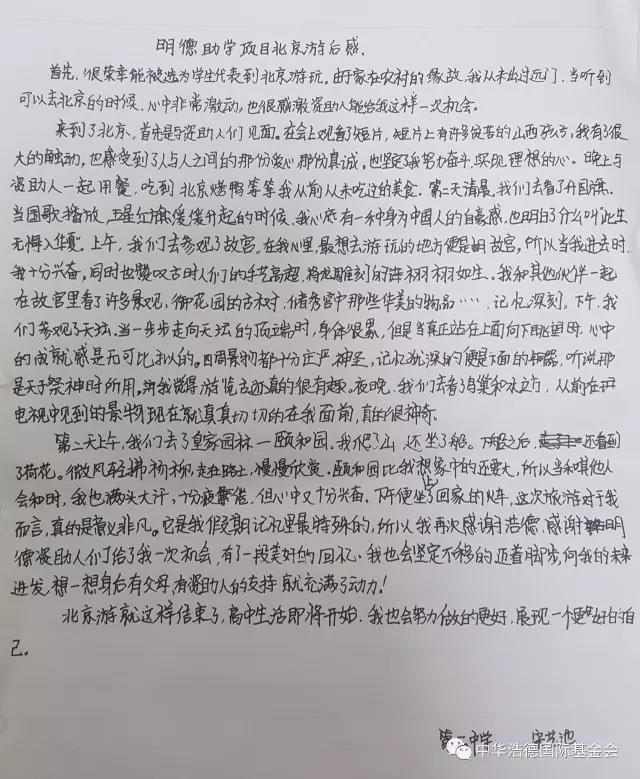 明德助学项目北京游后感.
首先,很荣幸能被选为学生代表到北京游玩。由于家在农村的缘故,我从未出过远门,当听到
可以去北京的时候,心中非常激动,也很感激资助人能给我这样一次机会。
来到了北京,首先是与资助人们见面。在会上观看了短片,短片上有许多贫苦的山西孩子,我有了很
大的触动,也感受到了人与人之间的那份爱心那份真诚。也坚定了我努力奋斗,实现理想的心。晚上与
资助人一起用餐,吃到北京烤鸭等等我从前从未吃过的美食。第二天清晨,我们去看了升国旗。
当国歌播放,五星红旗缓缓升起的时候,我心底有一种身为中国人的自豪感,也明白了什么叫"此生
无悔入华夏"。上午,我们去参观了故宫。在我心里,最想去游玩的地方便是故宫,所以当我进去时,
我十分兴奋。同时也赞叹古时人们的手艺高超,将龙雕刻的栩栩如生。我和其他伙伴一起
在故宫里看了许多景观,御花园的古树,储秀宫中那些华美的物品……,记忆深刻。下午,我
们参观了天坛。当一步步走向天坛的顶端时,身体很累,但是当真正站在上面向下眺望时,心中
的成就感是无可比拟的。四周景物都十分庄严,神圣,记忆犹深的便是下面的,听说那
是天子祭神时所用。我觉得游览古迹真的很有趣。夜晚,我们去看了鸟巢和水立方,从前在
电视中见到的景物现在就真真切切的在我面前,真的很神奇。
第三天上午,我们去了皇家园林—颐和园。我爬了山,还坐了船。下船之后,还看到
了荷花。微风轻拂杨柳,走在路上,慢慢欣赏。颐和园比我想象中的还要大,所以当和其他人
会和时,我也满头大汗,十分疲惫,但心中又十分兴奋。下午便坐上了回家的火车,这次旅游对于我
而言,真的是意义非凡。它是我假期记忆里最特殊的,所以我再次感谢浩德,感谢明
德资助人们给了我一次机会,有了一段美好的回忆。我也会坚定不移的迈着脚步,向我的未来
进发,想一想身后有父母,有资助人的支持,就充满了动力!
北京游就这样结束了,高中生活即将开始,我也会努力做的更好,展现一个更好的自
己。
第一中学
中华浩德国际基金会